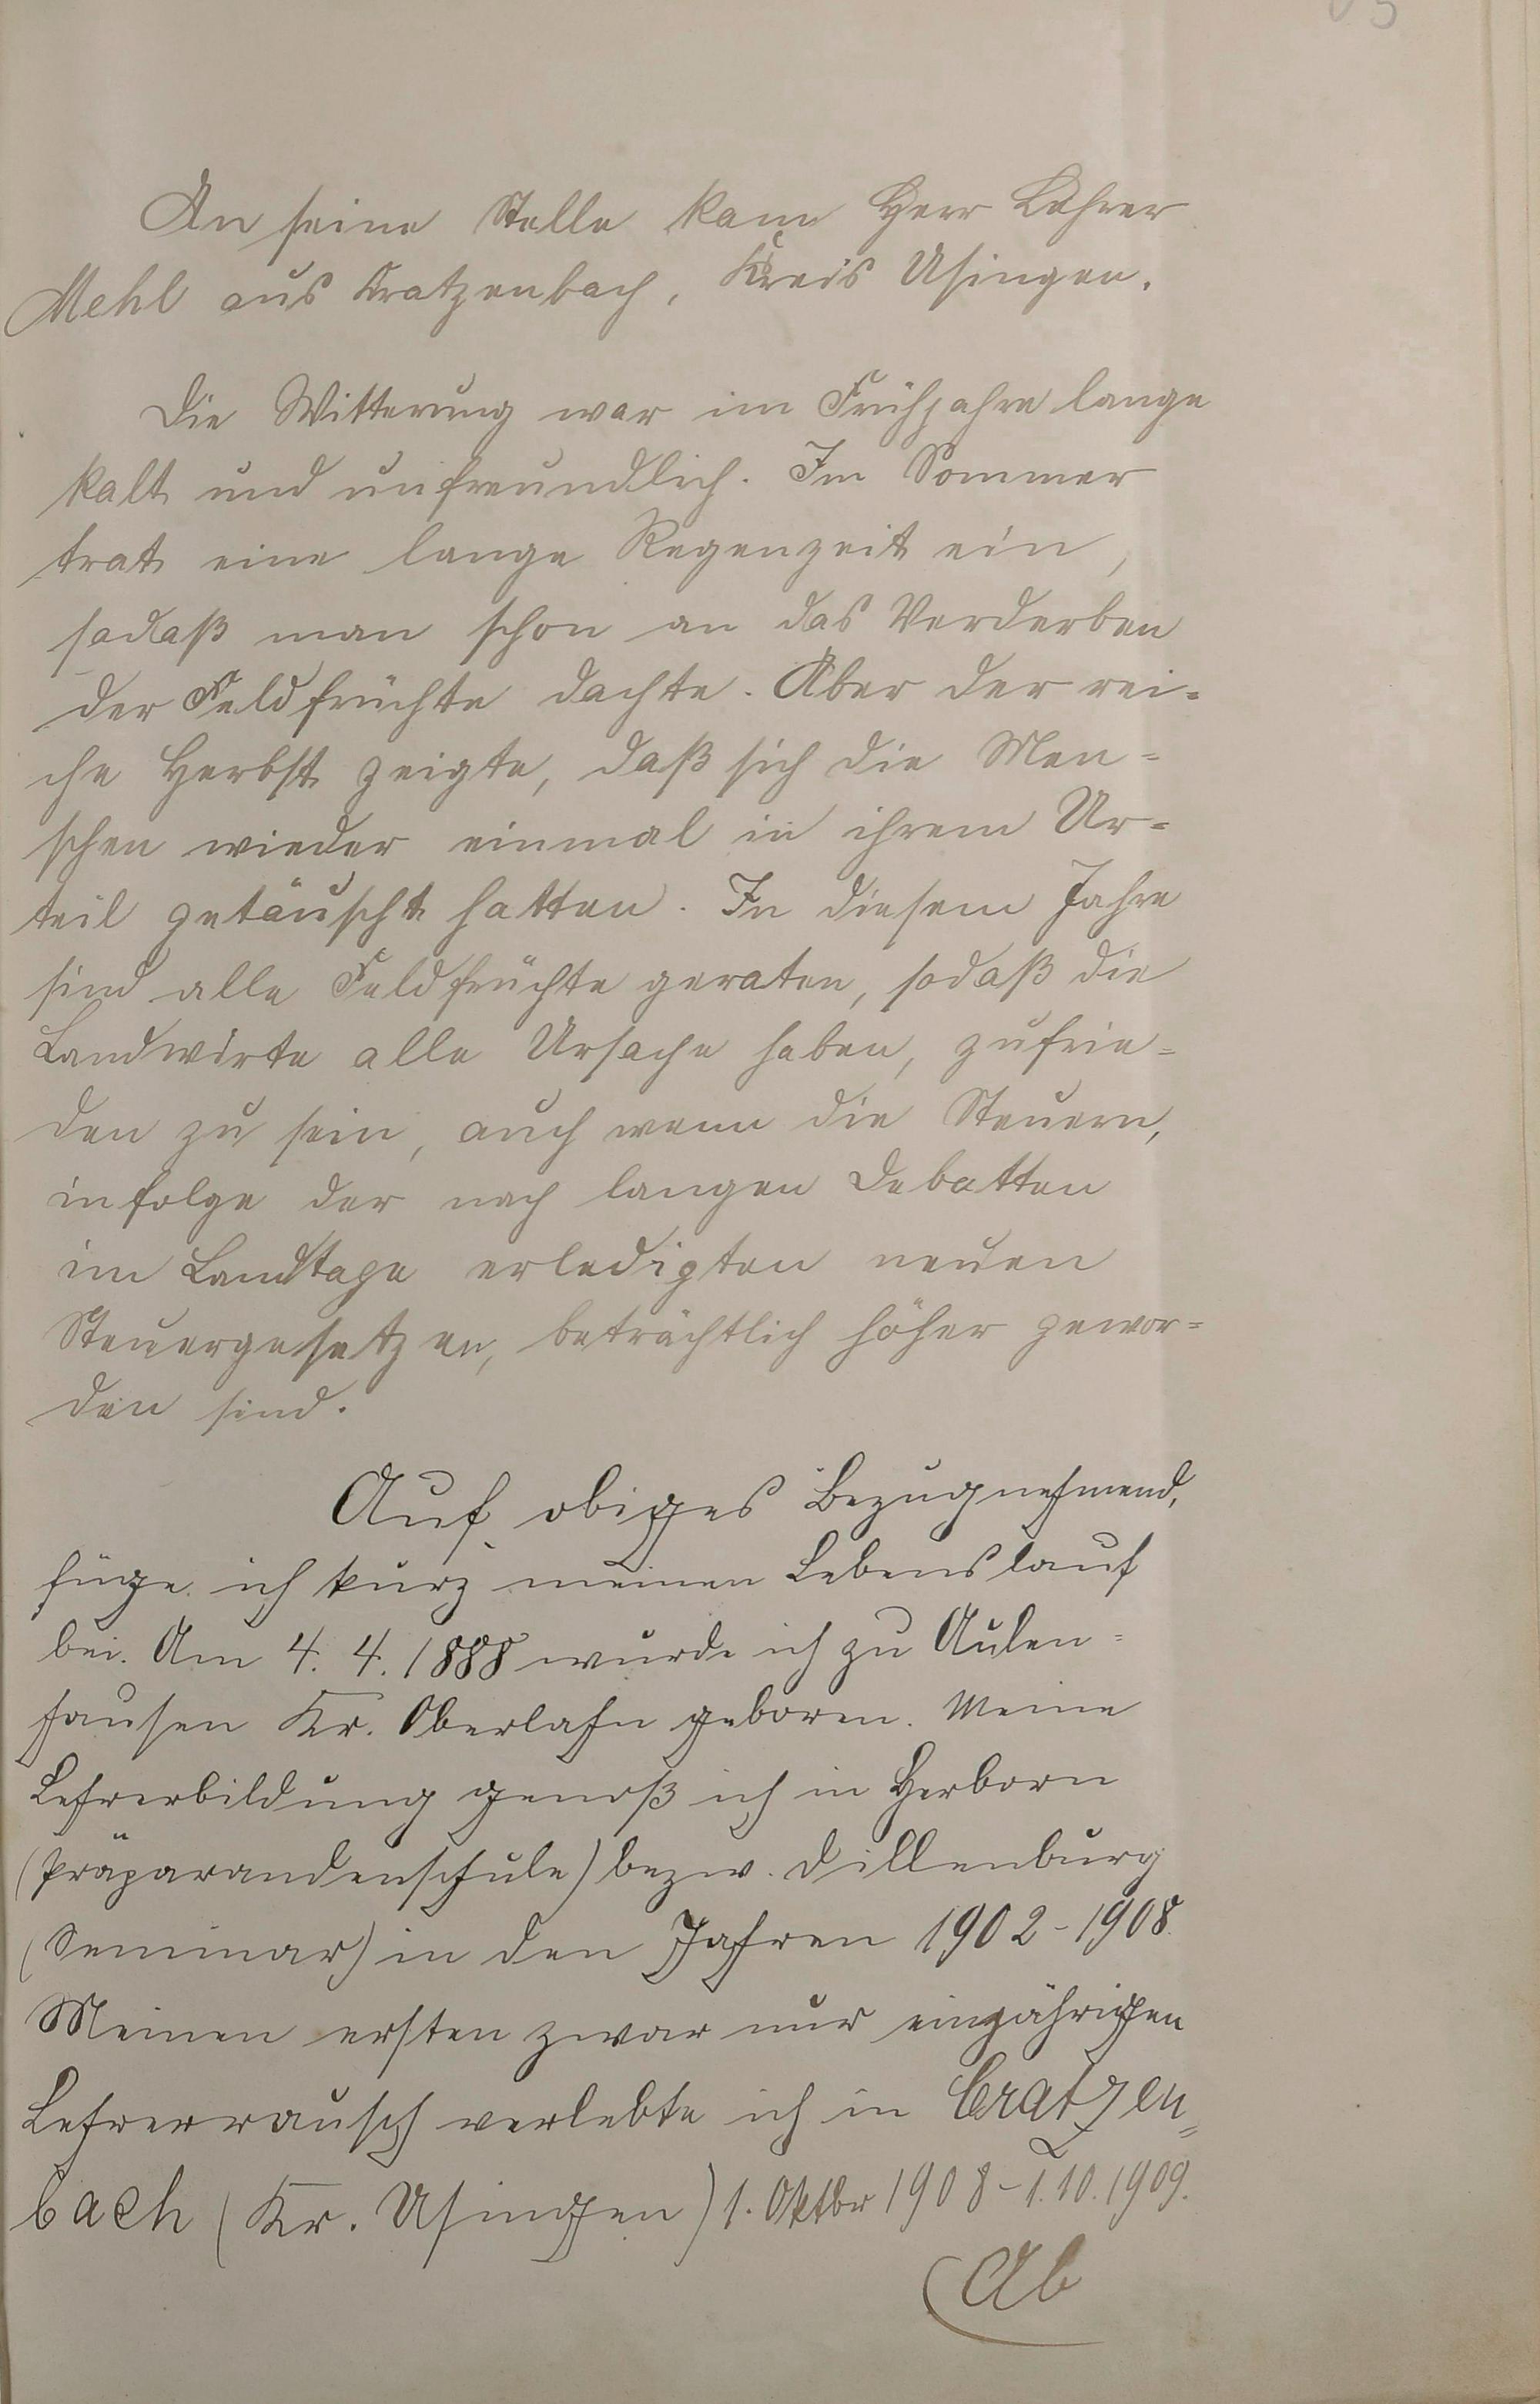 An seine Stelle kam Herr Lehrer
Mehl aus Kratzenbach, Kreis Usingen.
Die Witterung war im Frühjahre lange
kalt und unfreundlich. Im Sommer
trat eine lange Regenzeit ein,
sodaß man schon an das Verderben
der Feldfrüchte dachte. Aber der rei=
che Herbst zeigte, daß sich die Men=
schen wieder einmal in ihrem Ur=
teil getäuscht hatten. In diesem Jahre
sind alle Feldfrüchte geraten, sodaß die
Landwirte alle Ursache haben, zufrie=
den zu sein, auch wenn die Steuern,
infolge der nach langen Debatten
im Landtage erledigten neuen
Steuergesetzen, beträchtlich höher gewor=
den sind.
Auf obiges Bezugnehmend,
füge ich kurz meinen Lebenslauf
bei. Am 4. 4. 1888 wurde ich zu Aulen=
hausen Kr. Oberlahn geboren. Meine
Lehrerbildung genoß ich in Herborn
(Präparandenschule) bezw. Dillenburg
(Seminar) in den Jahren 1902-1908.
Meinen ersten zwar nur einjährigen
Lehrerrausch verlebte ich in Cratzen=
bach (Kr. Usingen) 1. Oktbr 1908-1.10.1909.
Ab